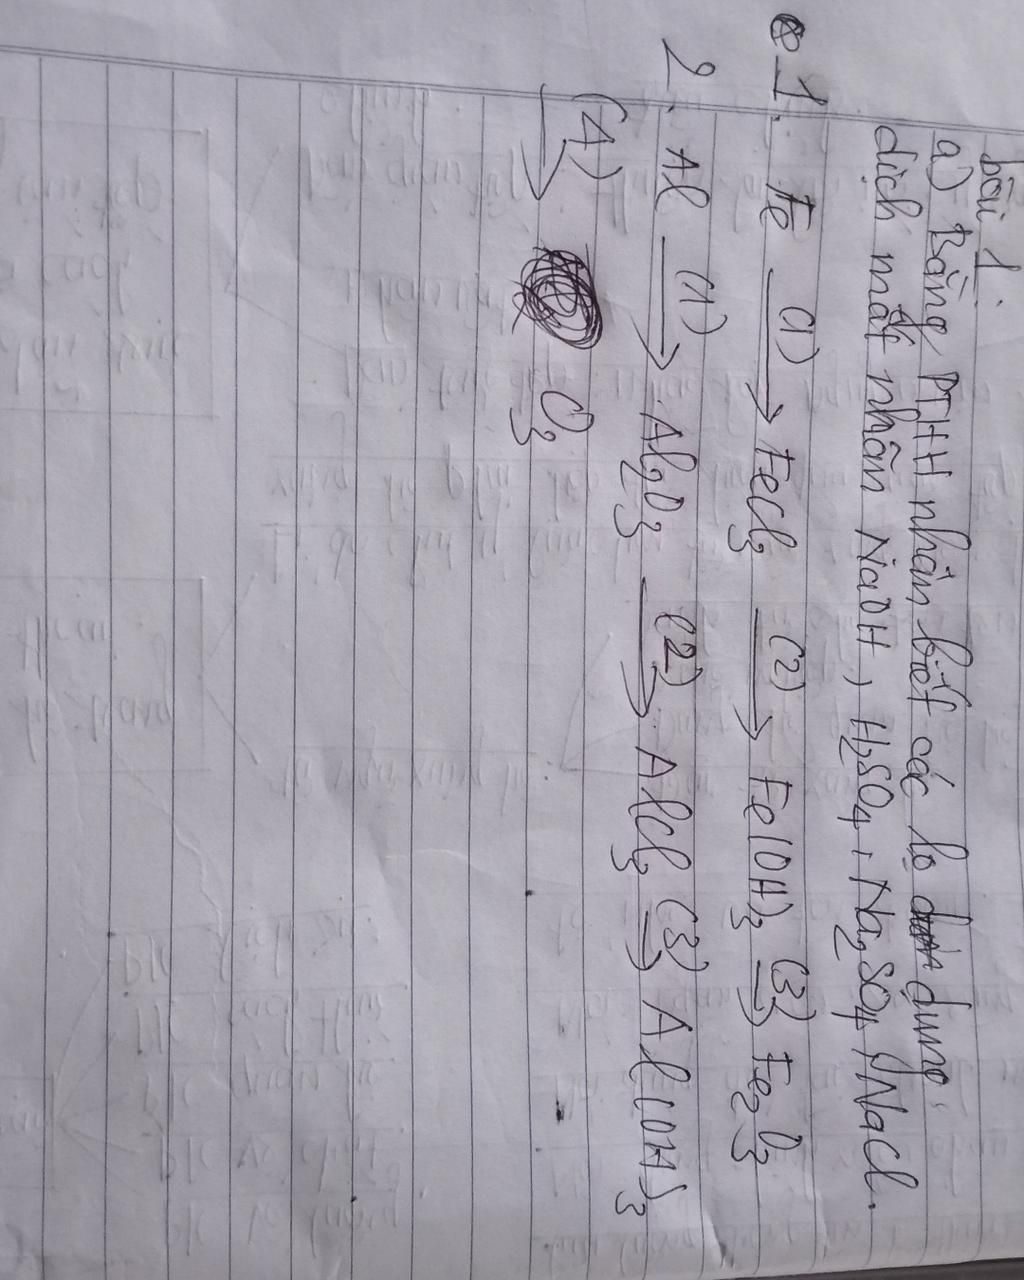 bài 1:
a) Bằng PTHH nhận biết các lọ đựng
dịch mất nhãn NaOH, H₂SO₄, Na₂SO₄, NaCl.
1. Fe (1)→ FeCl₃ (2)→ Fe(OH)₃ (3)→ Fe₂O₃
2. Al (1)→ Al₂O₃ (2)→ AlCl₃ (3)→ Al(OH)₃
(4)→ O₃